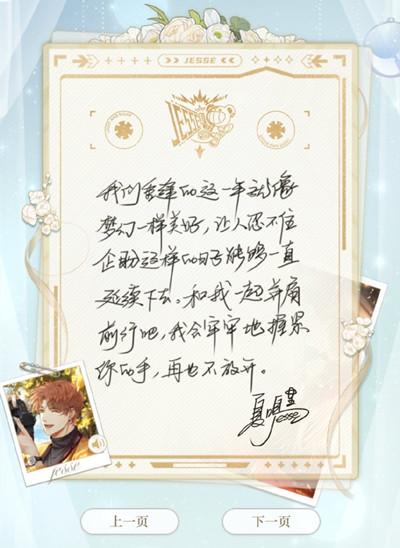 JESSE
JESSE
我们重逢的这一年就像
梦幻一样美好，让人忍不住
企盼这样的日子能够一直
延续下去。和我一起并肩
前行吧，我会牢牢地握紧
你的手，再也不放开。
夏鸣星
Jesse
Jesse
上一页
下一页